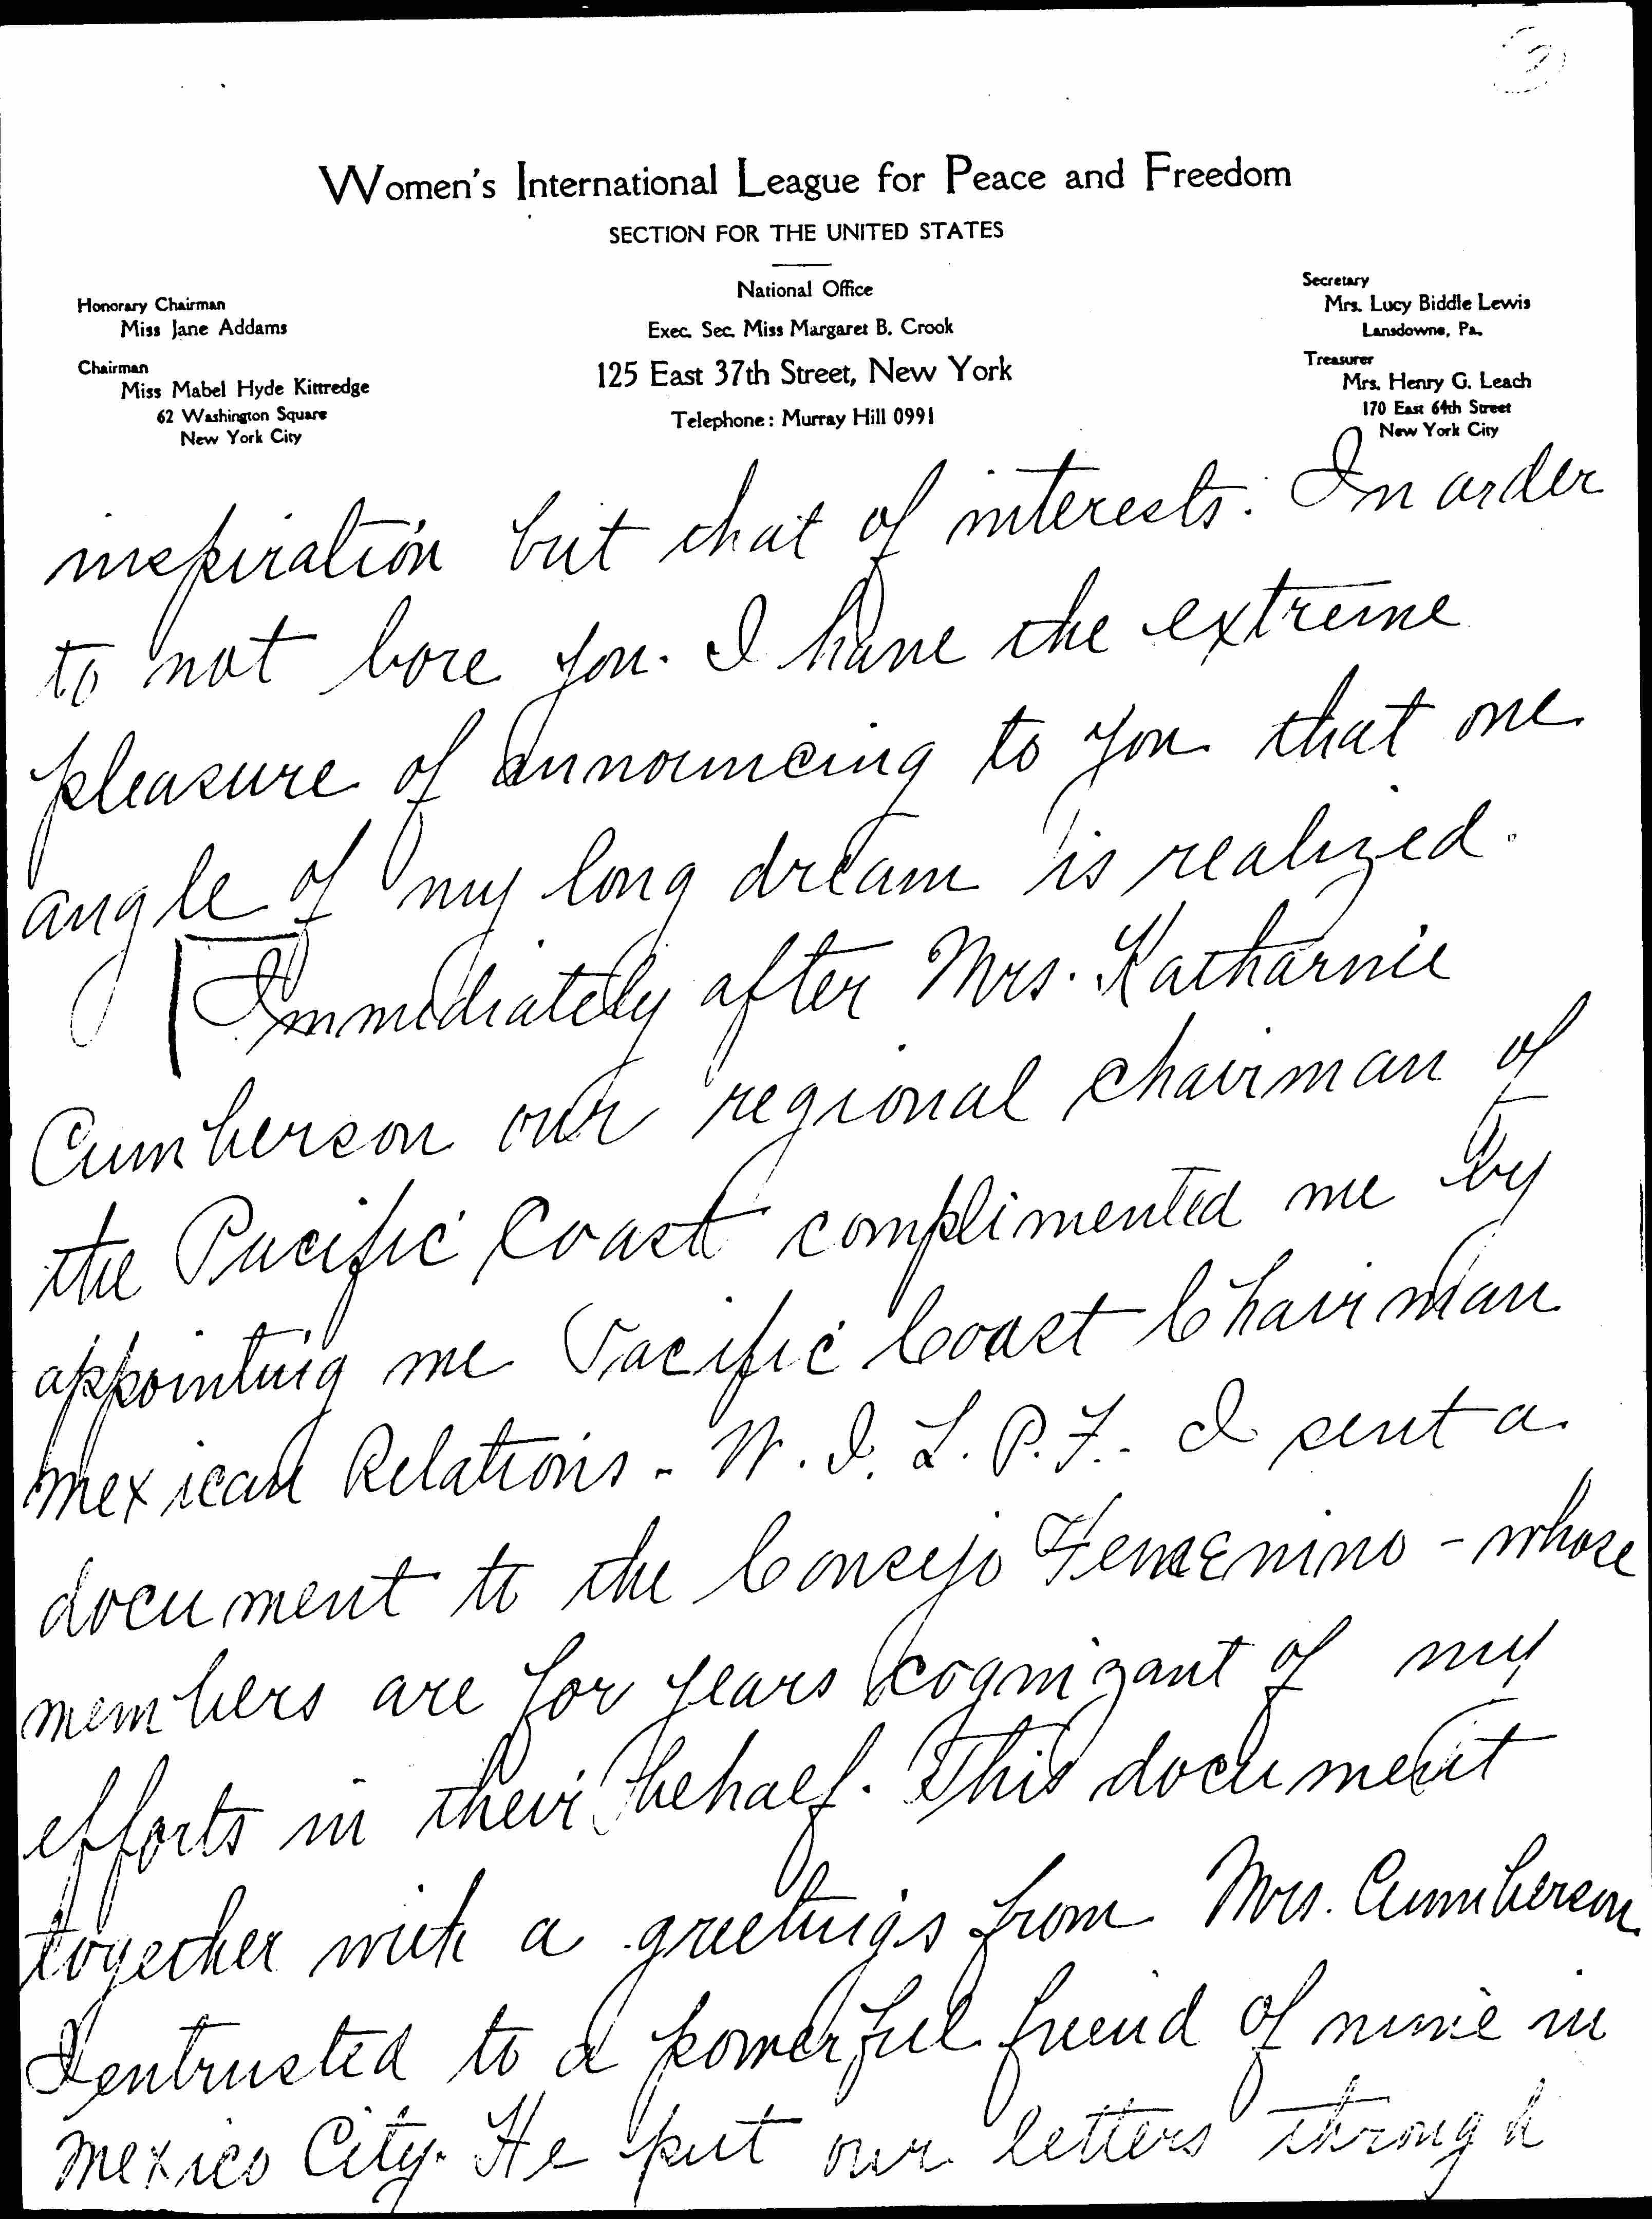 2
Women's International League for Peace and Freedom
SECTION FOR THE UNITED STATES
National Office
Exec. Sec. Miss Margaret B. Crook
125 East 37th Street, New York
Telephone: Murray Hill 0991
Honorary Chairman
Miss Jane Addams
Chairman
Miss Mabel Hyde Kittredge
62 Washington Square
New York City
Secretary
Mrs. Lucy Biddle Lewis
Lansdowne, Pa.
Treasurer
Mrs. Henry G. Leach
170 East 64th Street
New York City
inspiration but that of interests. In order
to not bore you. I have the extreme
pleasure of announcing to you that one
angle of my long dream is realized.
Immediately after Mrs. Katharine
Cumberson our regional chairman of
the Pacific Coast complimented me by
appointing me Pacific Coast Chairman
Mexican Relations - W. I. L. P. F. - I sent a
document to the Consejo Femenino - whose
members are for years cognizant of my
efforts in their behalf. This document
together with a greetings from Mrs. Cumberson
I entrusted to a powerful friend of mine in
Mexico City. He put our letters through